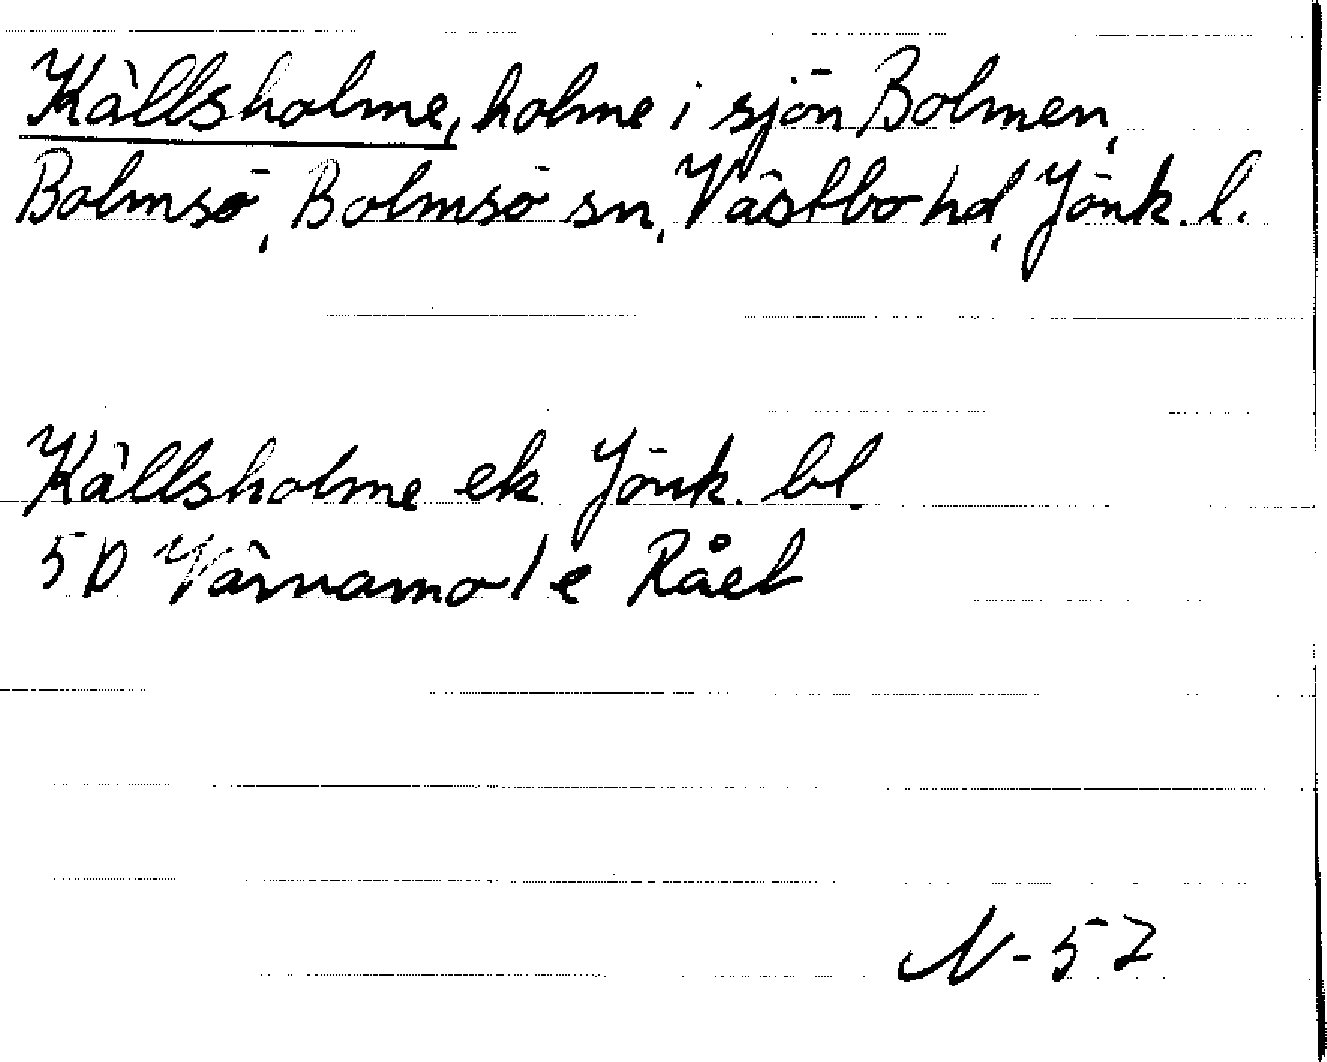 Källsholme, holme i sjön Bolmen,
Bolmsö, Bolmsö sn, Västbo hd, Jönk. l.
Källsholme ek Jönk. bl.
5D Värnamo 1e RAÄ
N-52